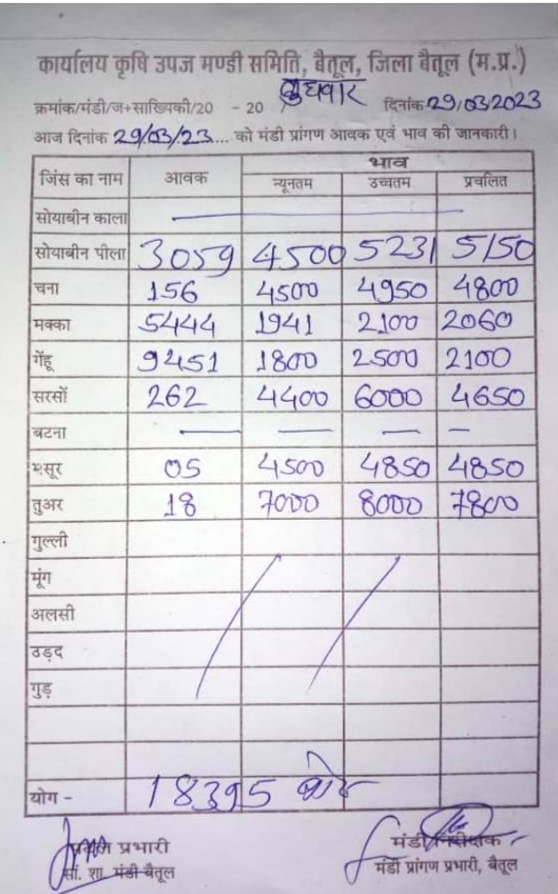 कार्यालय कृषि उपज मण्डी समिति, बैतूल, जिला बैतूल (म.प्र.)
बुधवार
क्रमांक/मंडी/ज+साख्यिकी/20 - 20 दिनांक 29/03/2023
आज दिनांक 29/03/23.... को मंडी प्रांगण आवक एवं भाव की जानकारी।
जिंस का नाम आवक भाव
न्यूनतम उच्चतम प्रचलित
सोयाबीन काला —
सोयाबीन पीला 3059 4500 5231 5150
चना 156 4500 4950 4800
मक्का 5444 1941 2100 2060
गेंहू 9451 1800 2500 2100
सरसों 262 4400 6000 4650
बटना — — — —
मसूर 05 4500 4850 4850
तुअर 18 7000 8000 7800
गुल्ली
मूंग
अलसी
उड़द
गुड़
योग - 18395
प्रभारी मंडी निरीक्षक
सां. शा. मंडी बैतूल मंडी प्रांगण प्रभारी, बैतूल